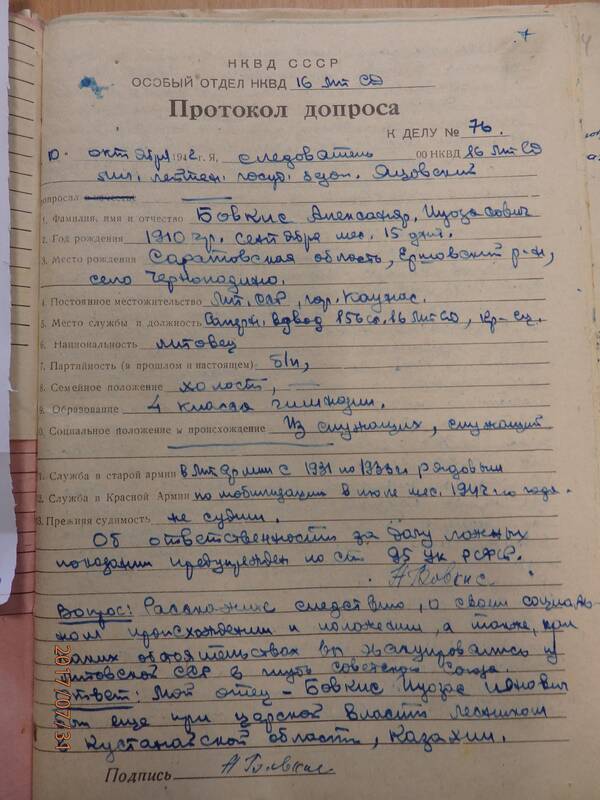 7
НКВД СССР
ОСОБЫЙ ОТДЕЛ НКВД 16 Лит СД
Протокол допроса
К ДЕЛУ № 76.
10. октября 1942 г. Я, следователь ОО НКВД 16 Лит СД
мл. лейтен. госуд. безоп. Яцовский
допросил
1. Фамилия, имя и отчество Бовкис Александр. Иузасович
2. Год рождения 1910 г. сентября мес. 15 дня.
3. Место рождения Саратовская область, Ершовский р-н,
село Чернопадино.
4. Постоянное местожительство Лит. ССР, гор. Каунас.
5. Место службы и должность взвод 156 сп. 16 Лит СД, кр-ец.
6. Национальность литовец
7. Партийность (в прошлом и настоящем) б/п,
8. Семейное положение холост,
9. Образование 4 класса гимназии.
10. Социальное положение и происхождение Из служащих, служащий
1. Служба в старой армии в Лит армии с 1931 по 1933 г рядовым
2. Служба в Красной Армии по мобилизации в июле мес. 1942-го года.
3. Прежняя судимость не судим.
Об ответственности за дачу ложных
показаний предупрежден по ст 95 УК РСФСР.
АБовкис
Вопрос: Расскажите следствию, о своем социаль-
ном происхождении и положении, а также, при
каких обстоятельствах вы эвакуировались из
Литовской ССР в глубь Советского Союза.
Ответ: Мой отец – Бовкис Иузас Ионович
был еще при царской власти лесником
в Кустанайской области, Казахии.
Подпись АБовкис
2017/07/31